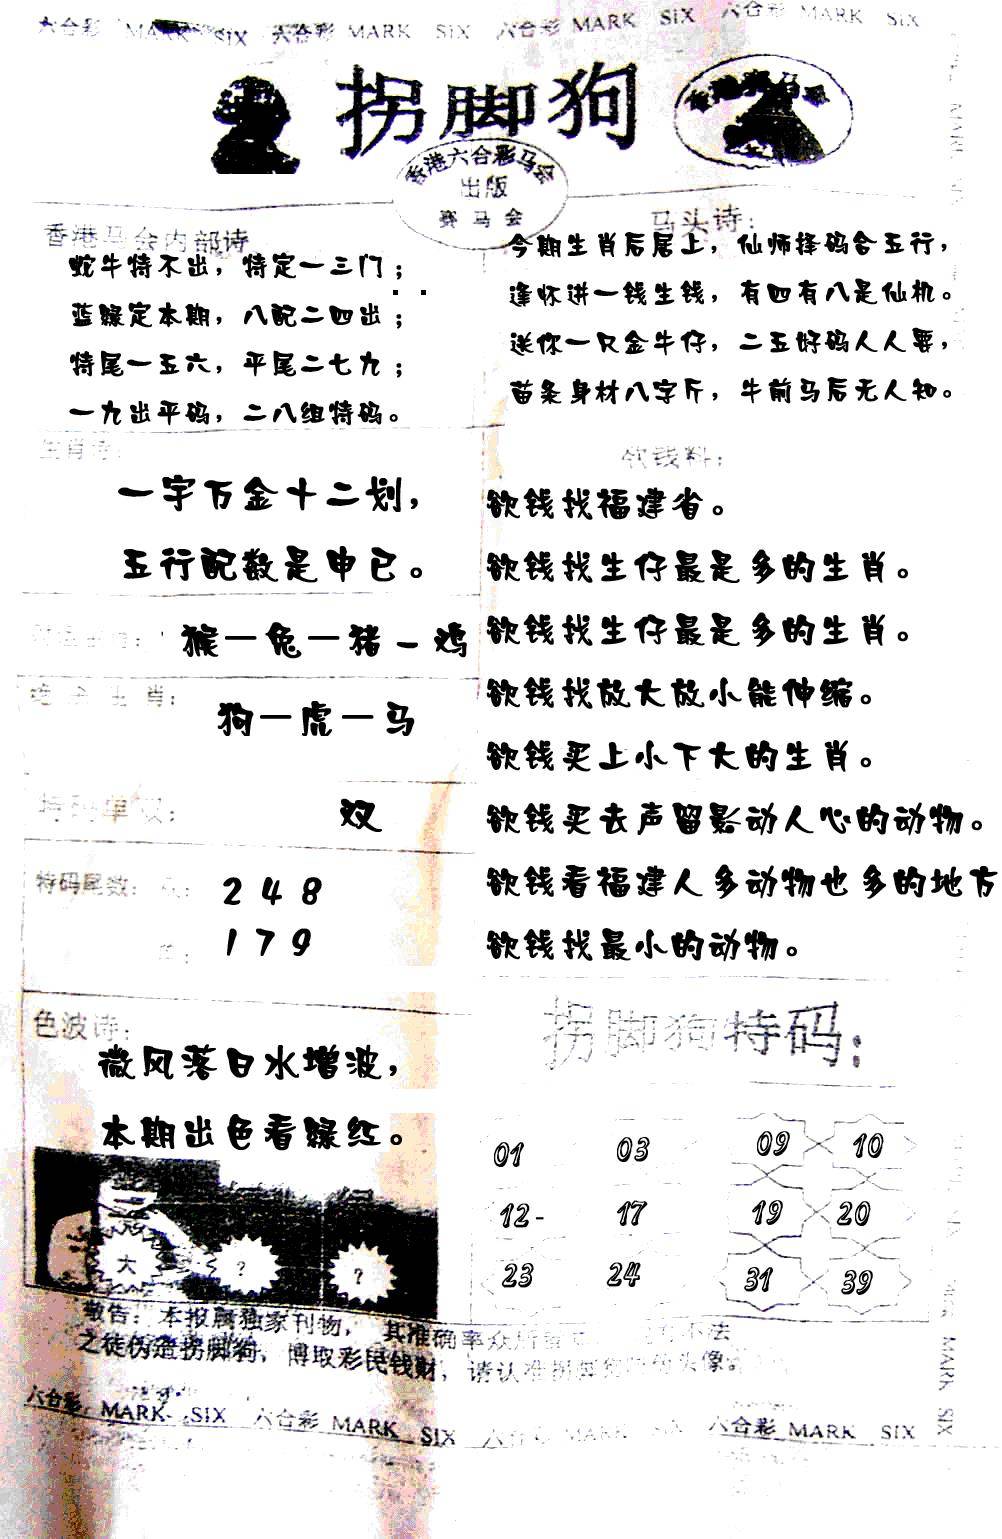 六合彩 MARK SIX 六合彩 MARK SIX 六合彩 MARK SIX 六合彩 MARK SIX
拐脚狗
香港六合彩马会
出版
赛马会
香港马会内部诗
蛇牛特不出，特定一三门；
蓝绿定本期，八配二四出；
特尾一五六，平尾二七九；
一九出平码，二八组特码。
马头诗：
今期生肖后居上，仙师择码合五行，
逢怀进一钱生钱，有四有八是仙机。
送你一只金牛仔，二五好码人人要，
苗条身材八字斤，牛前马后无人知。
生肖诗：
一字万金十二划，
五行配数是申已。
猴一兔一猪一鸡
生肖：
狗一虎一马
特码单双：
双
特码尾数：
2 4 8
1 7 9
色波诗：
微风落日水增波，
本期出色看绿红。
欲钱料：
欲钱找福建省。
欲钱找生仔最是多的生肖。
欲钱找生仔最是多的生肖。
欲钱找放大放小能伸缩。
欲钱买上小下大的生肖。
欲钱买去声留影动人心的动物。
欲钱看福建人多动物也多的地方
欲钱找最小的动物。
拐脚狗特码：
01 03 09 10
12- 17 19 20
23 24 31 39
大 ? ?
敬告：本报属独家刊物，其准确率众所 不法
之徒伪造拐脚狗，博取彩民钱财，请认准拐脚 头像
六合彩 MARK SIX 六合彩 MARK SIX 六合彩 MARK SIX 六合彩 MARK SIX
MARK SIX